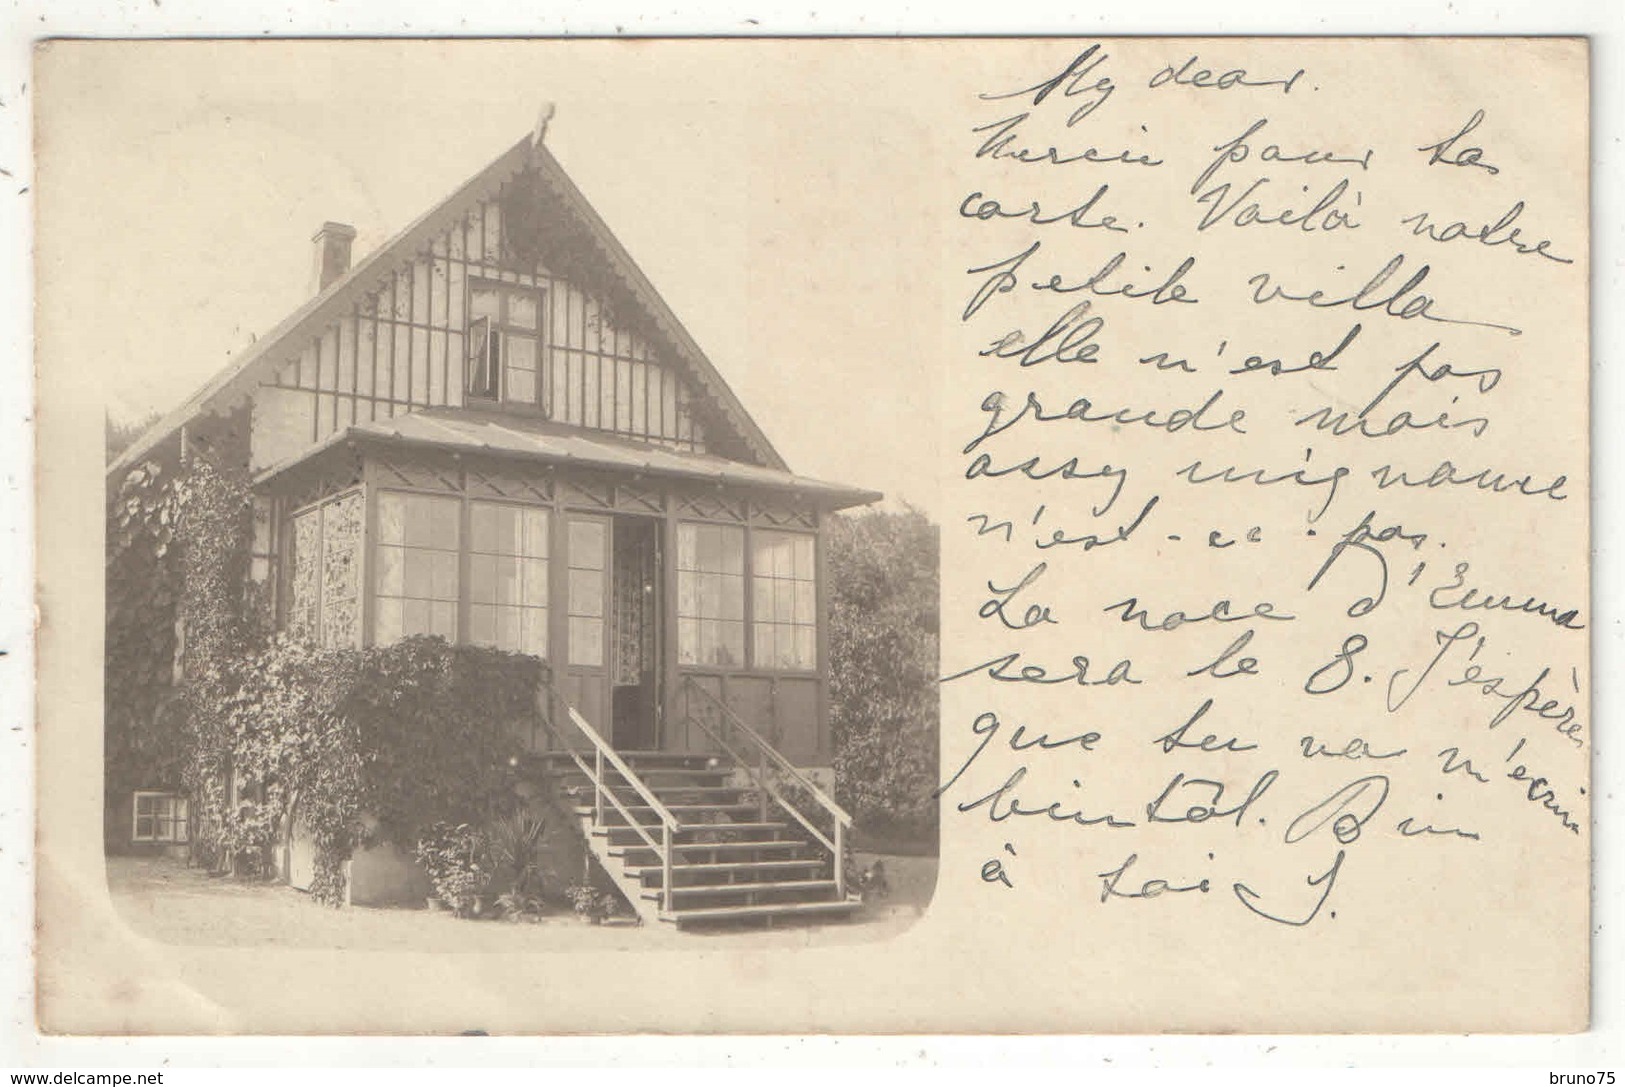 My dear.
Merci pour ta
carte. Voilà notre
petite villa
elle n'est pas
grande mais
assy mignonne
n'est-ce-pas.
La noce d'Emma
sera le 8. J'espère
que tu va m'ecrire
bintôt. Bin
à toi J.
www.delcampe.net
bruno75